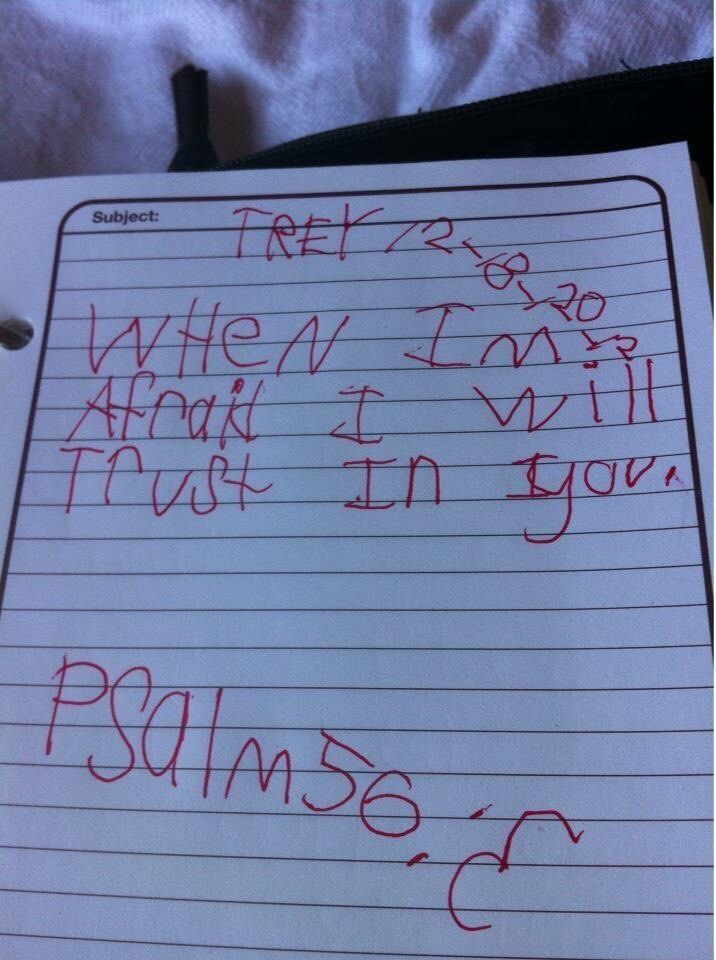 Subject: TREY 12-18-20
12
WHeN Im
Afraid I will
Trust In you.
PSalm 56:3